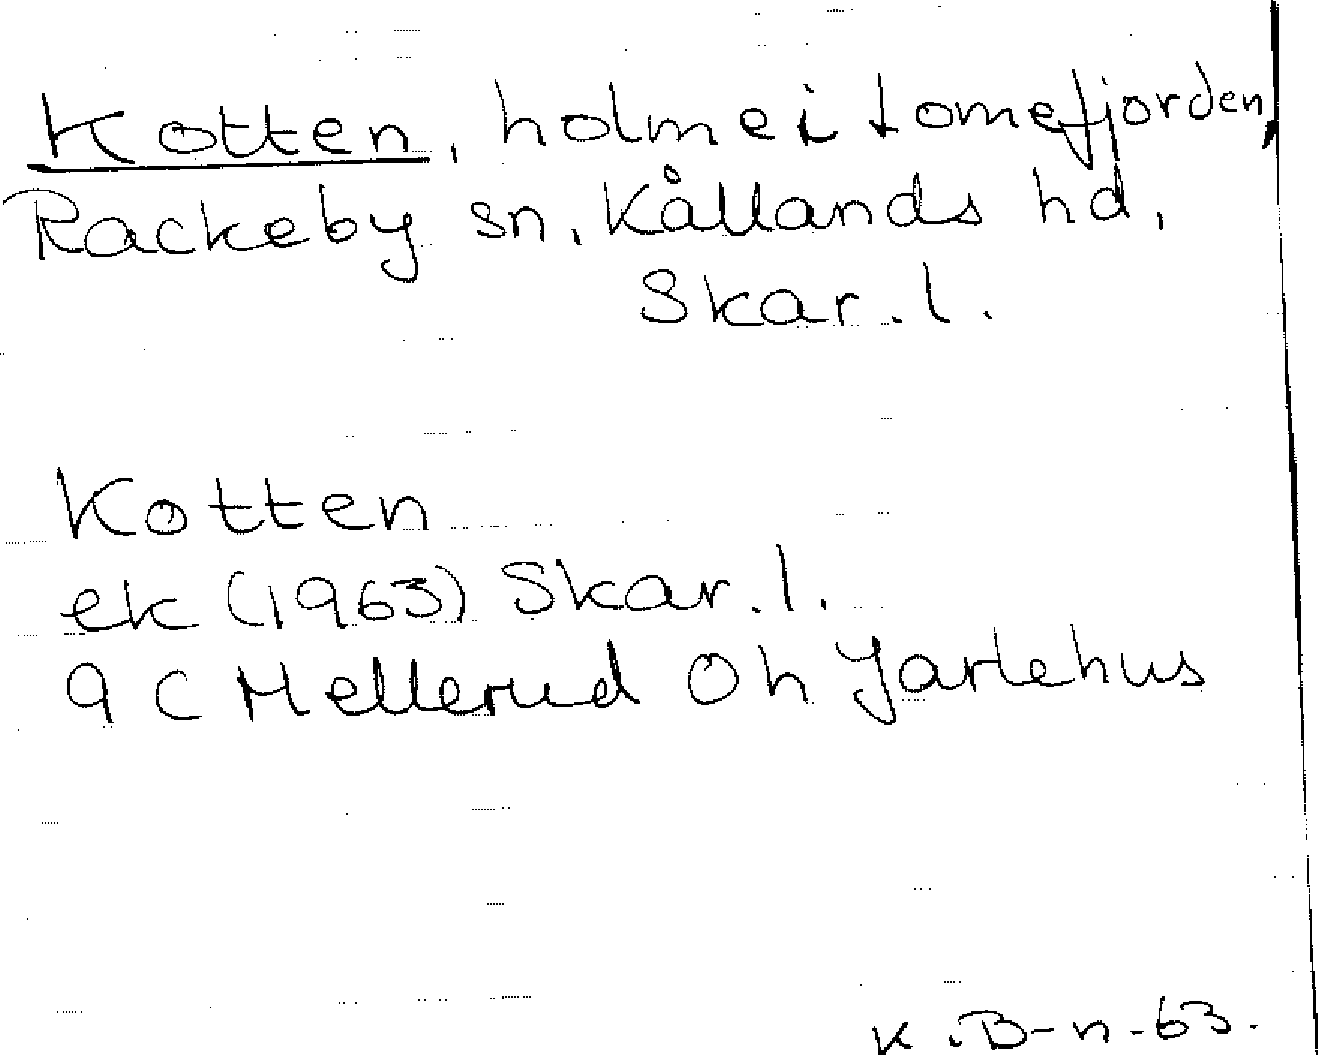 Kotten, holme i Lomefjorden,
Rackeby sn, Kållands hd,
Skar. l.
Kotten
ek (1963) Skar. l.
9 C Mellerud Oh Jarlehus
K. B-n -63.